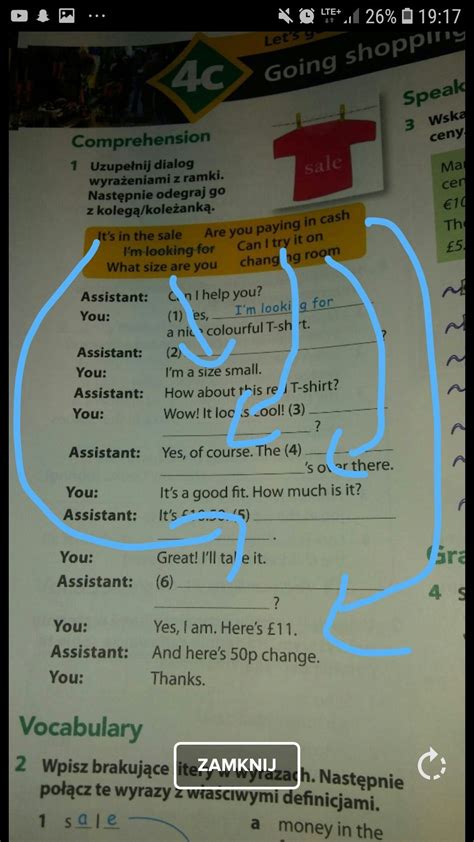 LTE+ 26% 19:17
Let's g
4c Going shopping
Comprehension
1 Uzupełnij dialog
wyrażeniami z ramki.
Następnie odegraj go
z kolegą/koleżanką.
sale
Speak
3 Wska
ceny.
Ma
cen
€10
Th
£5
It's in the sale Are you paying in cash
I'm looking for Can I try it on
What size are you changing room
Assistant: Can I help you?
You: (1) Yes, I'm looking for
a nice colourful T-shirt.
Assistant: (2) ?
You: I'm a size small.
Assistant: How about this red T-shirt?
You: Wow! It looks cool! (3)
?
Assistant: Yes, of course. The (4)
's over there.
You: It's a good fit. How much is it?
Assistant: It's £10.50. (5)
.
You: Great! I'll take it.
Assistant: (6)
?
You: Yes, I am. Here's £11.
Assistant: And here's 50p change.
You: Thanks.
Gra
4 s
Vocabulary
ZAMKNIJ
2 Wpisz brakujące litery w wyrazach. Następnie
połącz te wyrazy z właściwymi definicjami.
1 s a l e a money in the